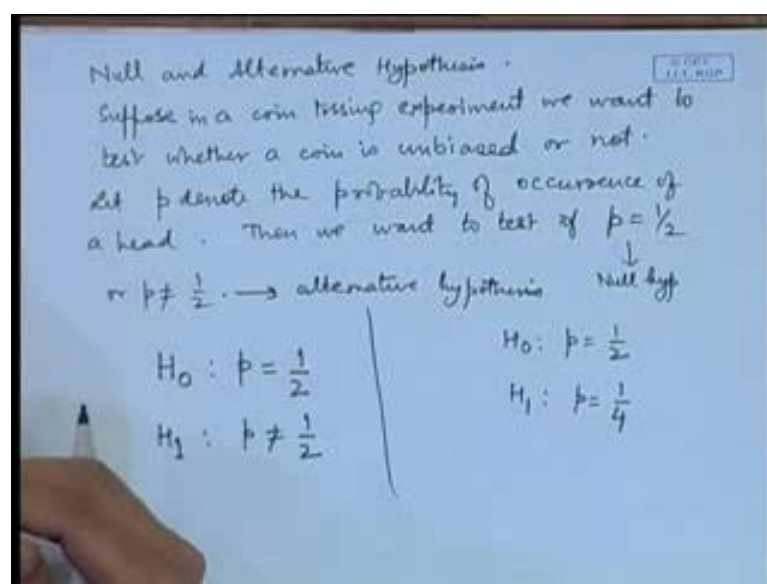 Null and Alternative Hypothesis.
Suppose in a coin tossing experiment we want to
test whether a coin is unbiased or not.
Let p denote the probability of occurrence of
a head. Then we want to test if p = 1/2
↓
or p ≠ 1/2. → alternative hypothesis Null hyp
H₀ : p = 1/2
H₁ : p ≠ 1/2
H₀ : p = 1/2
H₁ : p = 1/4
I.I.T. KGP